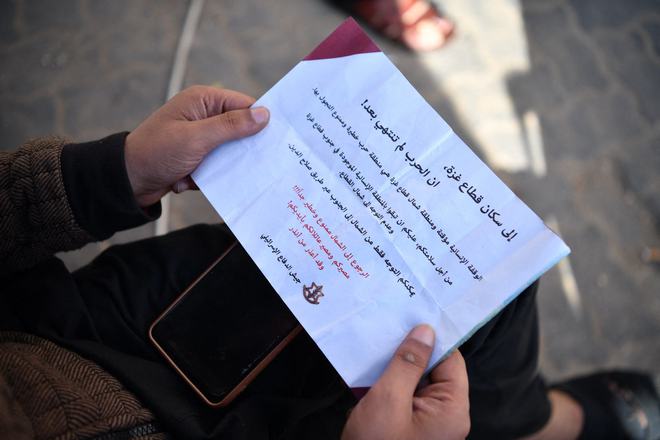 إلى سكان قطاع غزة،
ان الحرب لم تنتهي بعد!
الوقفة الإنسانية مؤقتة ومنطقة شمال قطاع غزة هي منطقة حرب خطيرة وممنوع التجول بها.
من أجل سلامتكم، عليكم ان تبقوا بالمنطقة الإنسانية الموجودة في جنوب قطاع غزة
وعدم التوجه إلى شمال القطاع.
يمكنكم التوجه فقط من الشمال إلى الجنوب عبر طريق صلاح الدين.
الرجوع إلى الشمال ممنوع وخطير جداً!!!
مصيركم ومصير عائلاتكم بأيديكم!
وقد أعذر من أنذر
جيش الدفاع الإسرائيلي